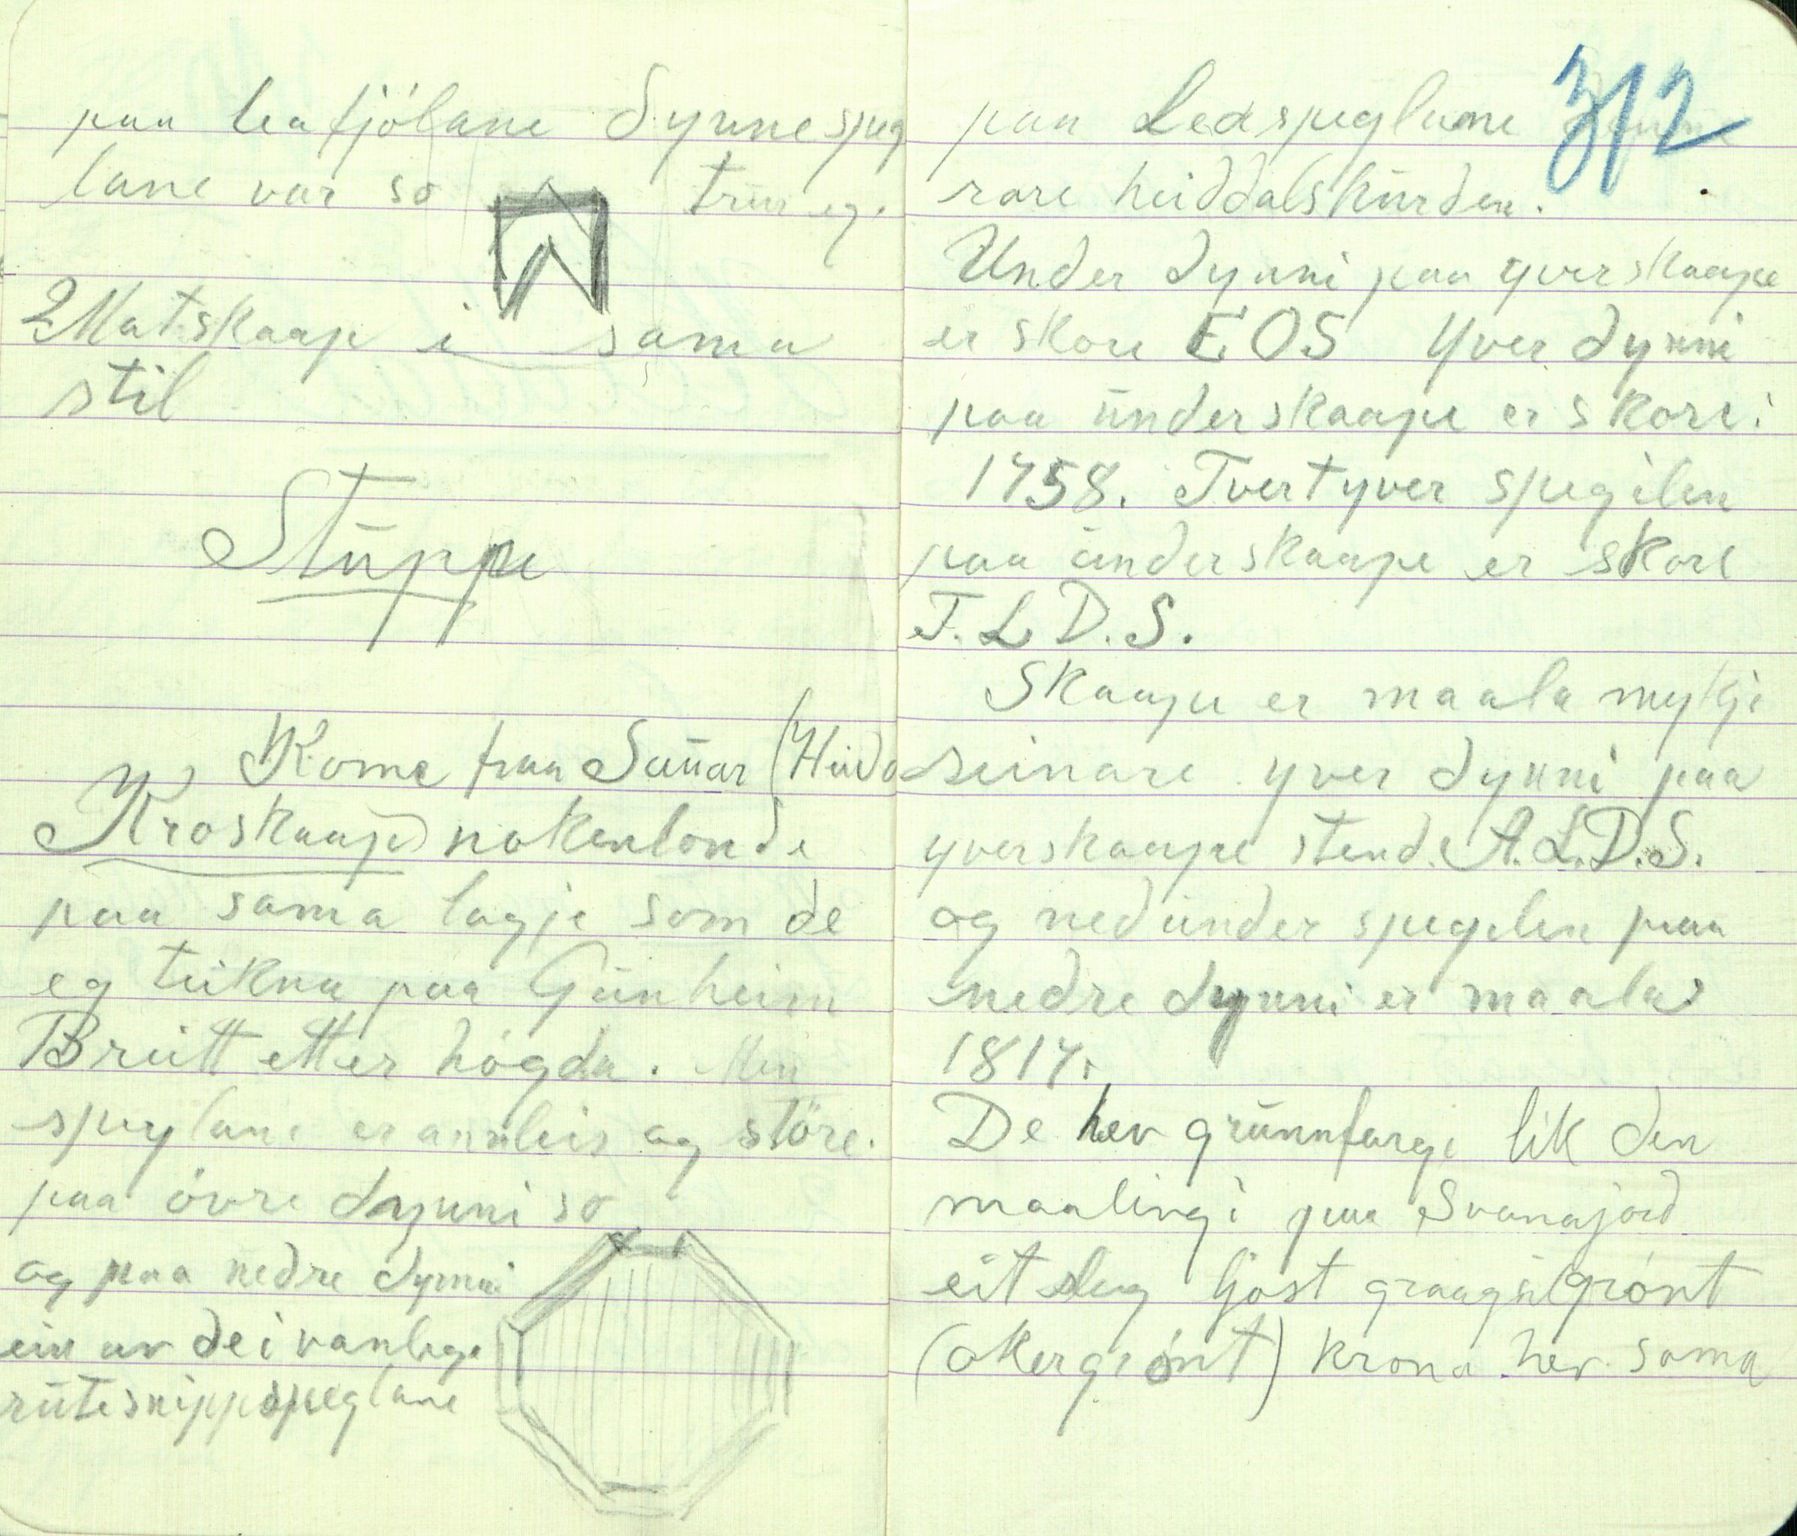 paa leafjölane dynnespeg
lane var so trur eg.
2 Matskaap i sama
stil
Stüppe
Kome fraa Saüar (Heida
Kroskaape nokenlonde
paa sama lagje som de
eg teikna paa Günheim
Breitt etter högda. Men
speglane er annleis og störe.
paa övre dynni so
og paa nedre dynni
ein av dei vanlege
rütesnippspeglane
312
paa Ledspeglane
rare heiddalskürden.
Under dynni paa yverskaape
er skore EOS Yver dynni
paa ünderskaape er skore:
1758. Tvertyver spegilen
paa ünderskaape er skore
T.L D.S.
Skaape er maala mykje
seinare yver dynni paa
yverskaape stend. A.L.D.S.
og nedünder spegelen paa
nedre dynni er maala
1817.
De hev grünnfarge lik den
maalingi paa Svanajord
eit slag ljost graagülgrönt
(okergrönt) krona hev sama